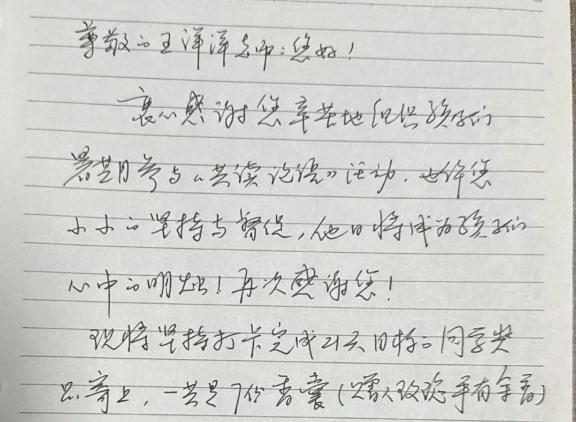 尊敬的王洋洋老师:您好!
衷心感谢您辛苦地组织孩子们
暑期参与“共读论语”活动.也许您
小小的坚持与督促,他日将成为孩子们
心中的明灯!再次感谢您!
现将坚持打卡完成21天目标的同学奖
品寄上,一共是7份香囊(赠人玫瑰手有余香)